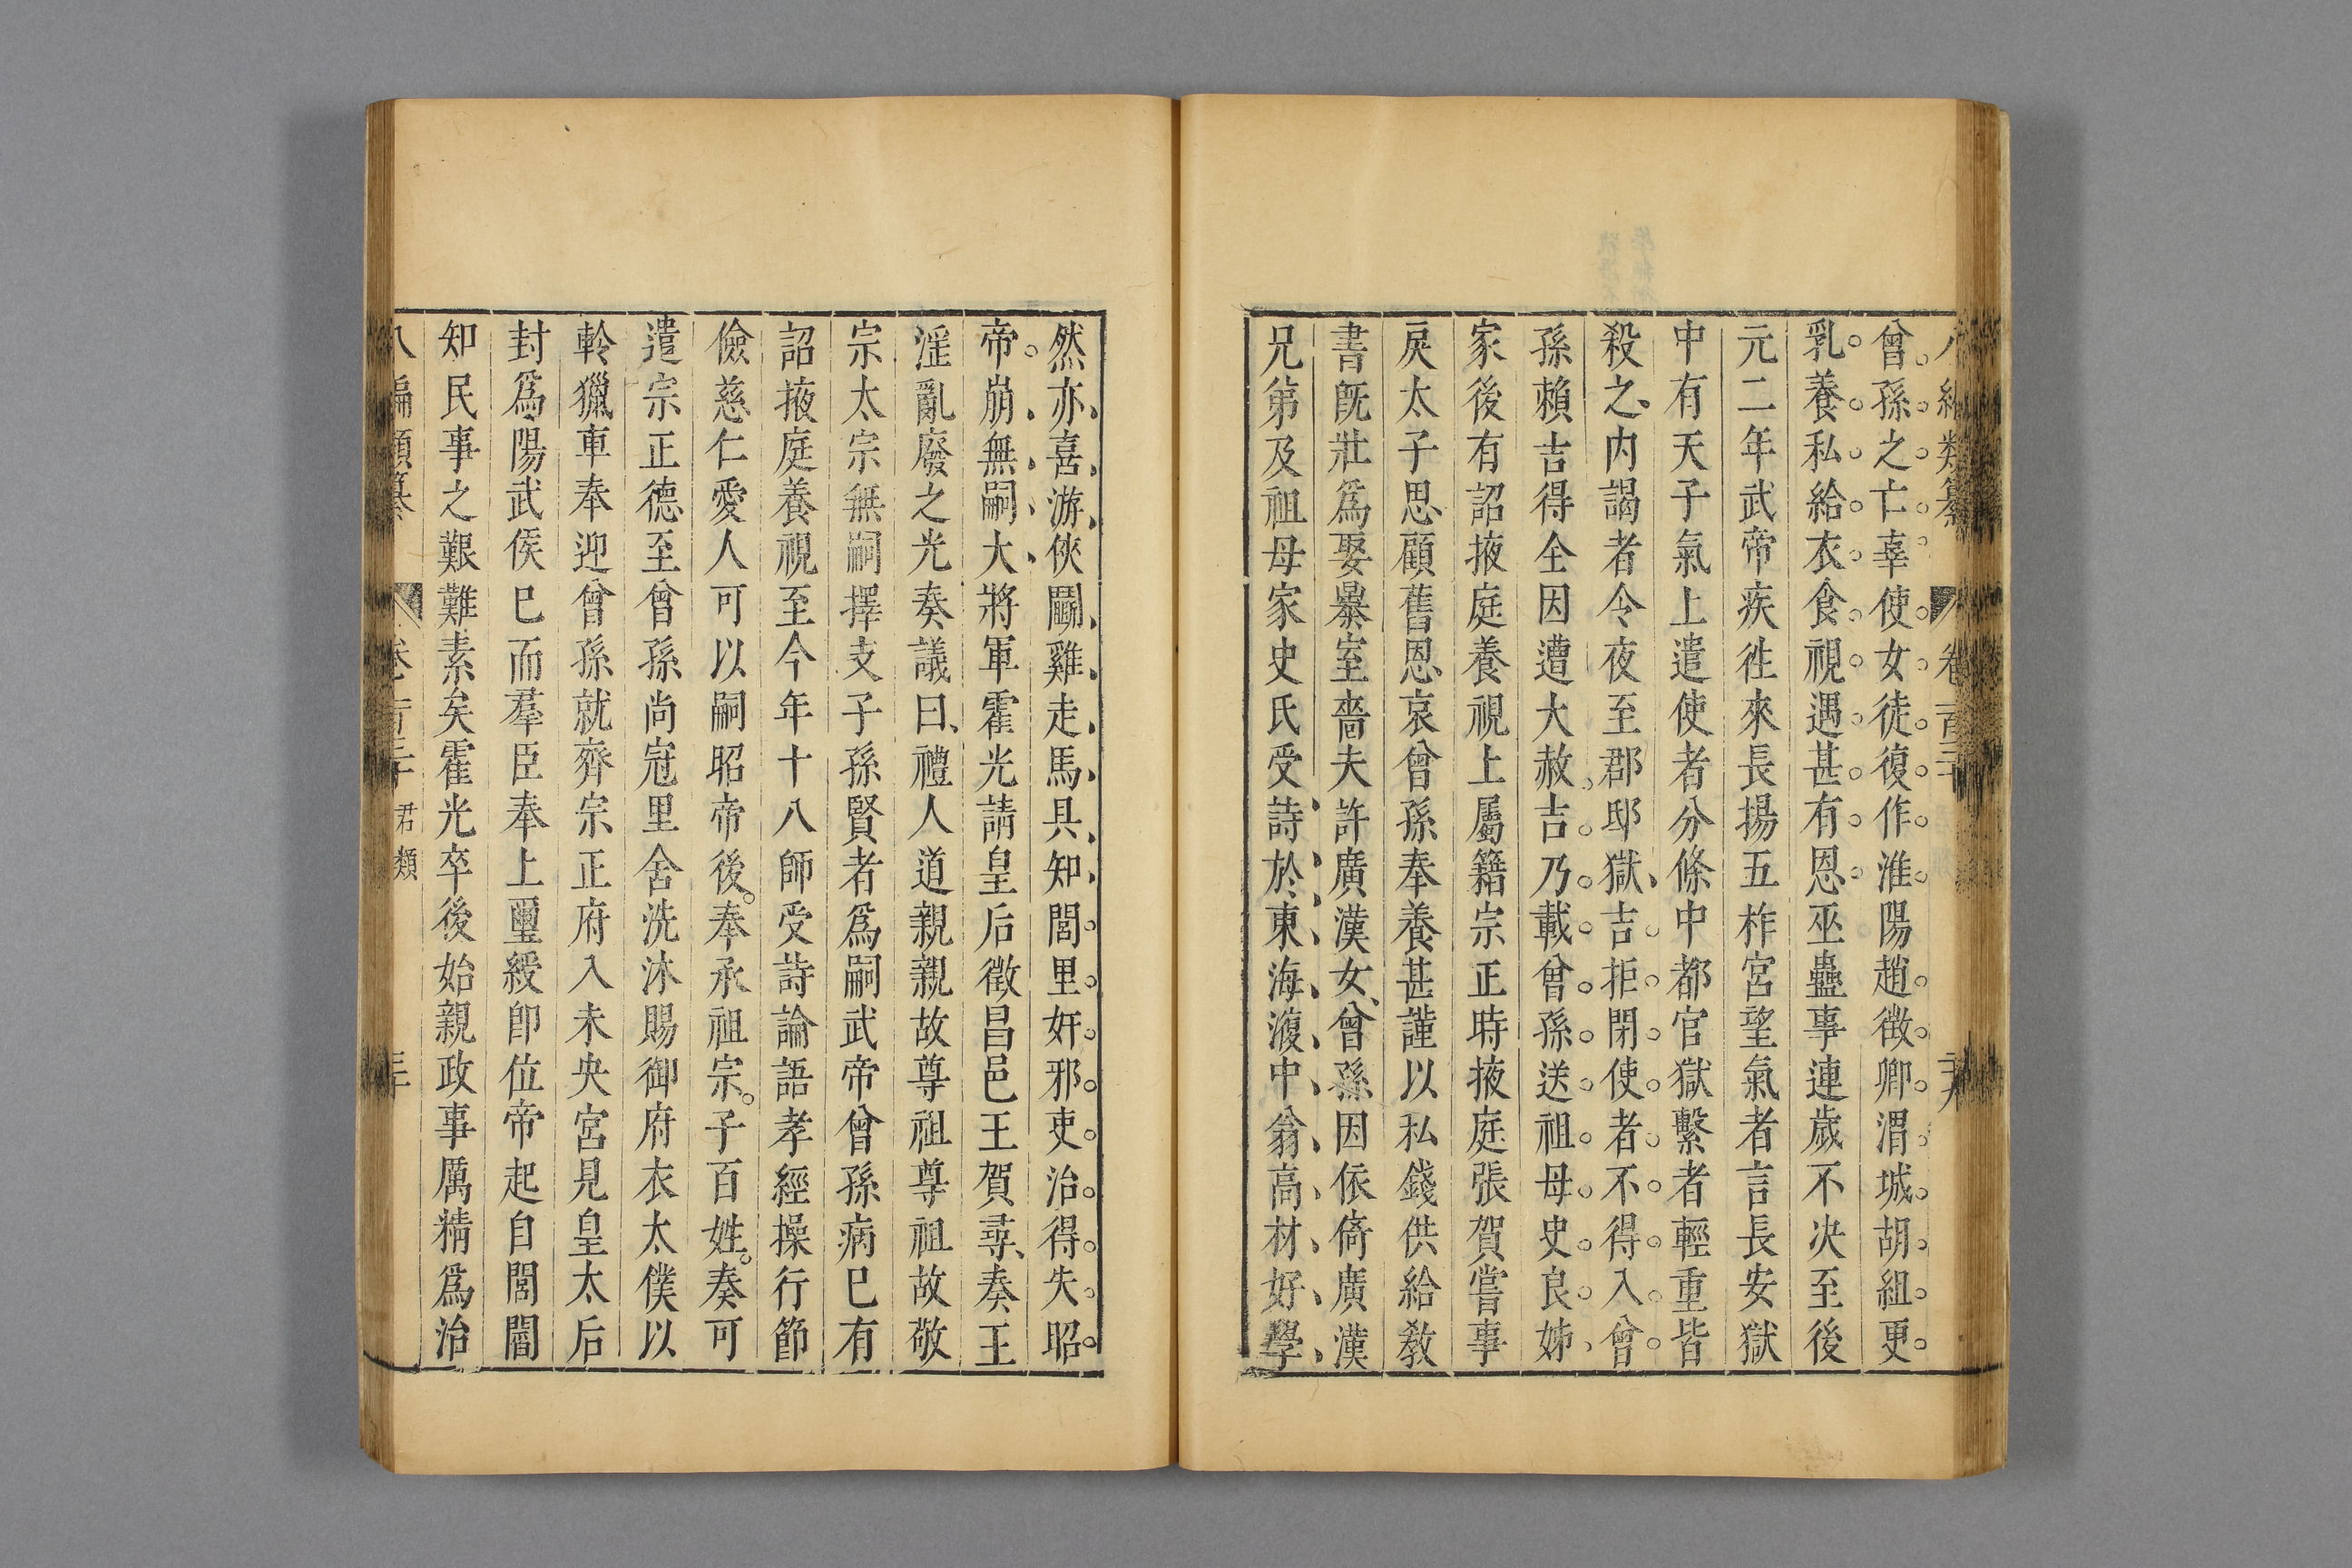 曾孫之亡辜使女徒復作淮陽趙徵卿渭城胡組更
乳養私給衣食視遇甚有恩巫蠱事連歲不决至後
元二年武帝疾徃來長揚五柞宮望氣者言長安獄
中有天子氣上遣使者分條中都官獄繫者輕重皆
殺之内謁者令夜至郡邸獄吉拒閉使者不得入曾
孫賴吉得全因遭大赦吉乃載曾孫送祖母史良姊
家後有詔掖庭養視上屬籍宗正時掖庭張賀嘗事
戾太子思顧舊恩哀曾孫奉養甚謹以私錢供給敎
書旣壯爲娶㬥室嗇夫許廣漢女曾孫因依倚廣漢
兄弟及祖母家史氏受詩於東海澓中翁高材好學
然亦喜游俠鬬雞走馬具知閭里奸邪吏治得失昭
帝崩無嗣大將軍霍光請皇后徵昌邑王賀尋奏王
淫亂廢之光奏議曰禮人道親親故尊祖尊祖故敬
宗太宗無嗣擇支子孫賢者爲嗣武帝曾孫病巳有
詔掖庭養視至今年十八師受詩論語孝經操行節
儉慈仁愛人可以嗣昭帝後奉承祖宗子百姓奏可
遣宗正德至曾孫尚冠里舍洗沐賜御府衣太僕以
軨獵車奉迎曾孫就齊宗正府入未央宮見皇太后
封爲陽武侯巳而羣臣奉上璽綬卽位帝起自閭閻
知民事之艱難素矣霍光卒後始親政事厲精爲治
君類